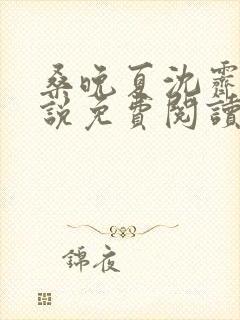 桑晚夏沈霽
說免費閱讀
錦夜